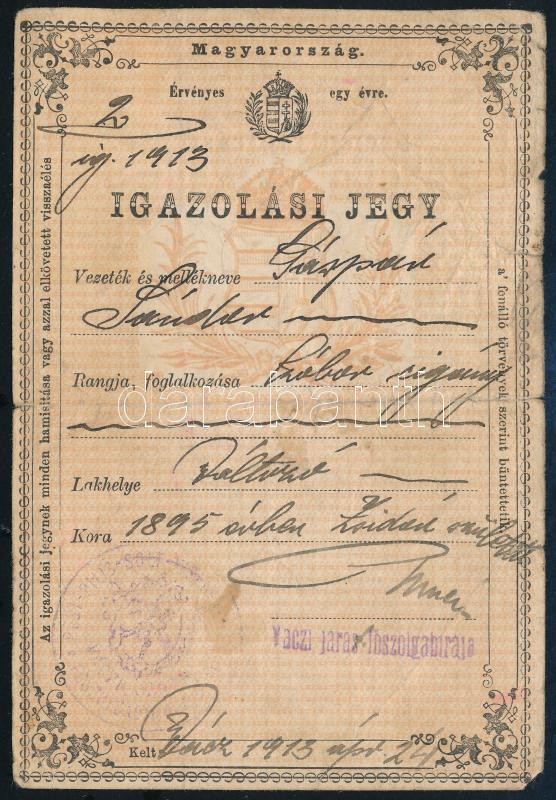 Magyarország.
Érvényes egy évre.
2
ig. 1913
IGAZOLÁSI JEGY
Vezeték és mellékneve Gáspár
Sándor
Rangja, foglalkozása kóbor cigány
darabanth
Lakhelye változó
Kora 1895 évben Zsidón született
Váczi járás főszolgabirája
Kelt Vácz 1913 ápr 24
Az igazolási jegynek minden hamisítása vagy azzal elkövetett visszaélés
a' fenálló törvények szerint büntettetik.